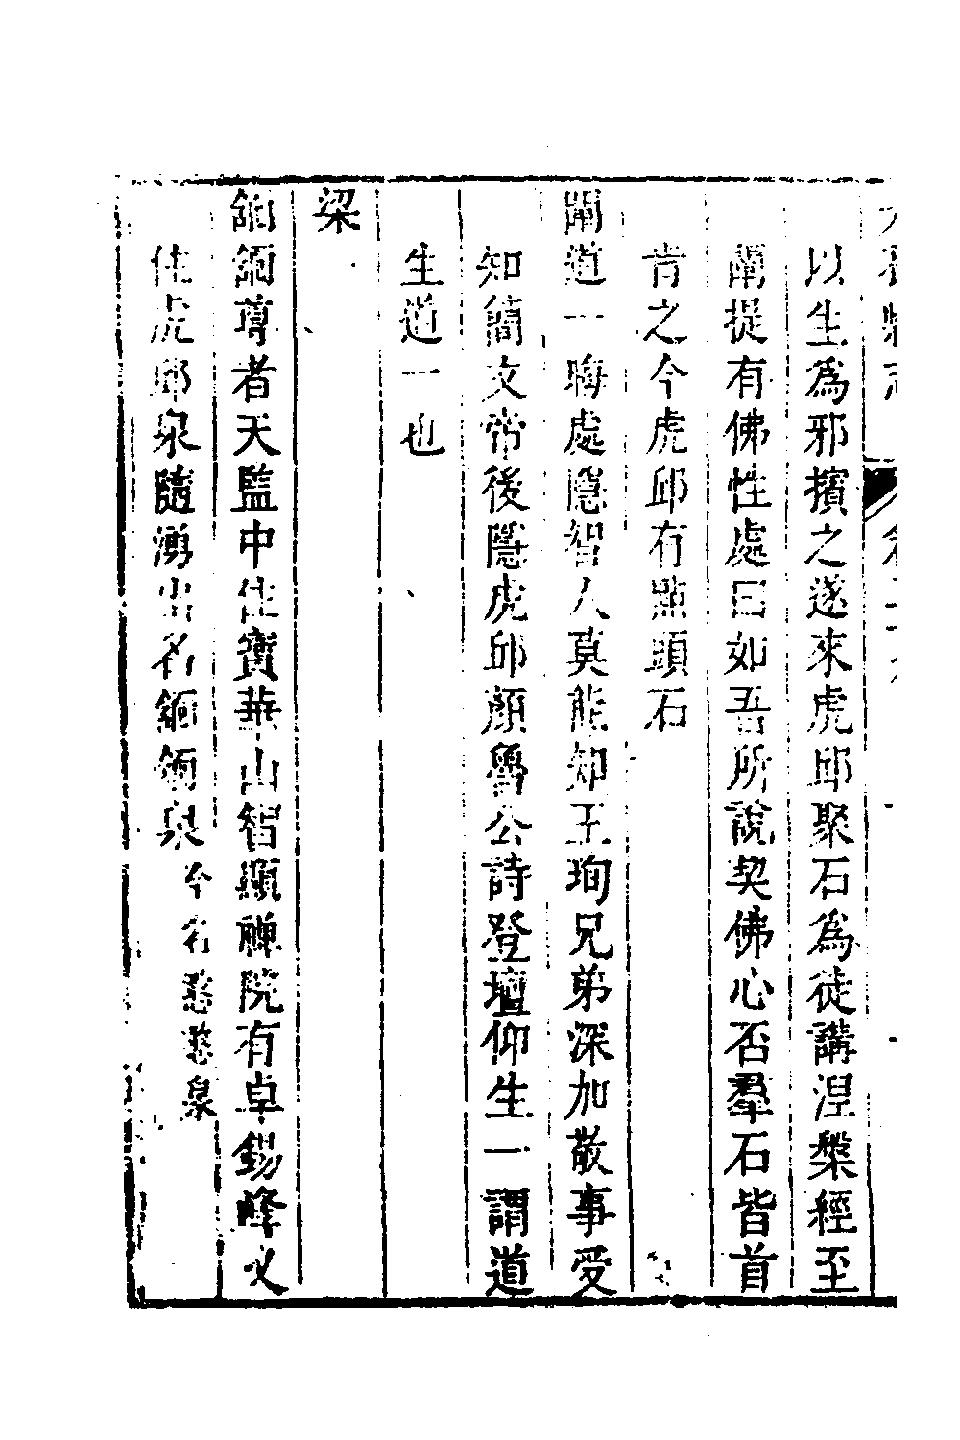 以生為邪擯之遂來虎邱聚石為徒講涅槃經至
闡提有佛性處曰如吾所說契佛心否羣石皆首
肯之今虎邱有點頭石
道一晦處隱智人莫能知王珣兄弟深加敬事受
知簡文帝後隱虎邱顏魯公詩登壇仰生一謂道
生道一也
梁
尊者天監中住寶華山智顯禪院有卓錫峰又
住虎邱泉隨湧出名泉今名憨憨泉